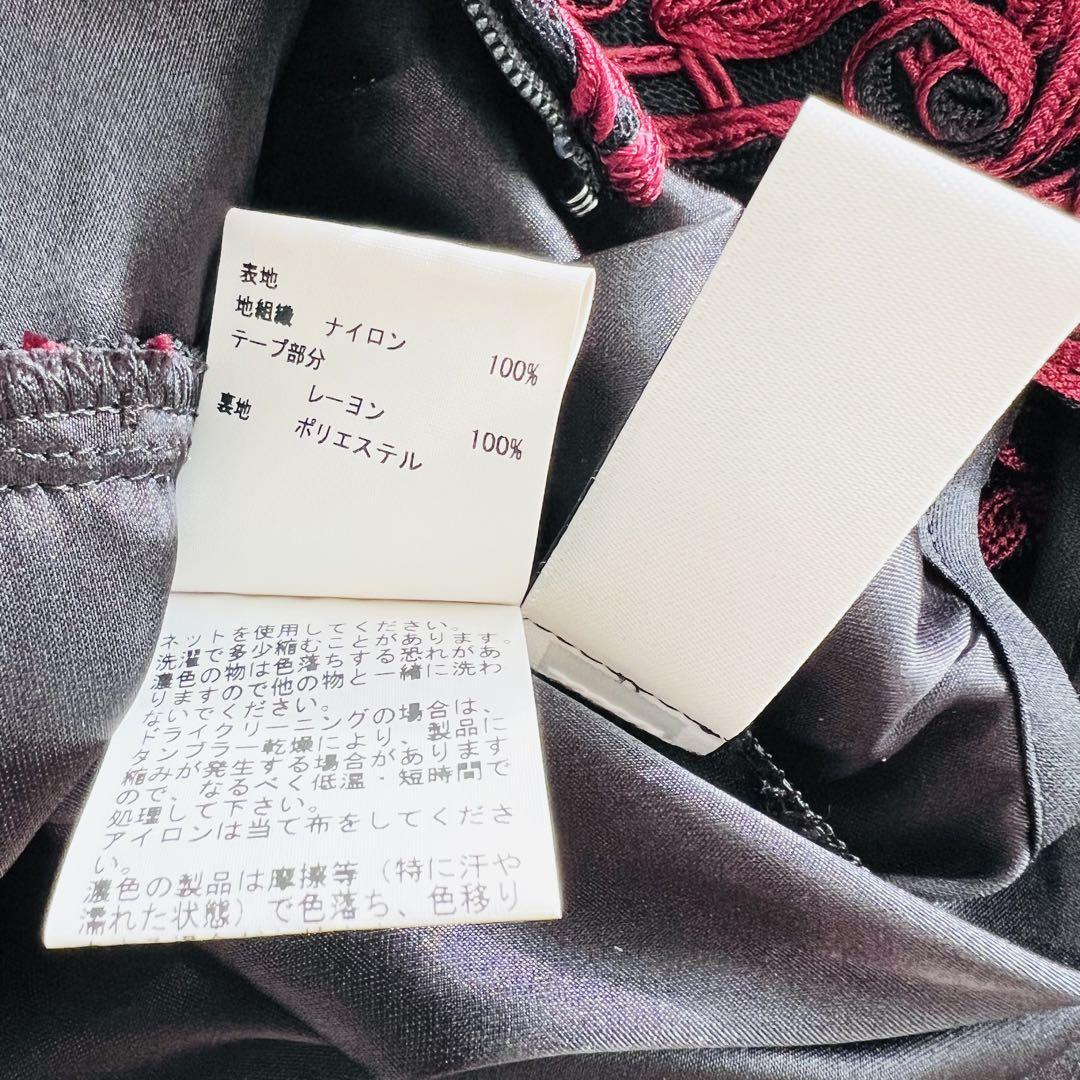 表地
地組織 ナイロン 100%
テープ部分
レーヨン 100%
裏地 ポリエステル
ネットを使用してください。
洗濯で多少縮むことがあります。
濃色の物は色落ちする恐れがあ
りますので他の物と一緒に洗わ
ないでください。
ドライクリーニングの場合は、
タンブラー乾燥により、製品に
縮みが発生する場合があります
ので、なるべく低温・短時間で
処理して下さい。
アイロンは当て布をしてくださ
い。
濃色の製品は摩擦等（特に汗や
濡れた状態）で色落ち、色移り